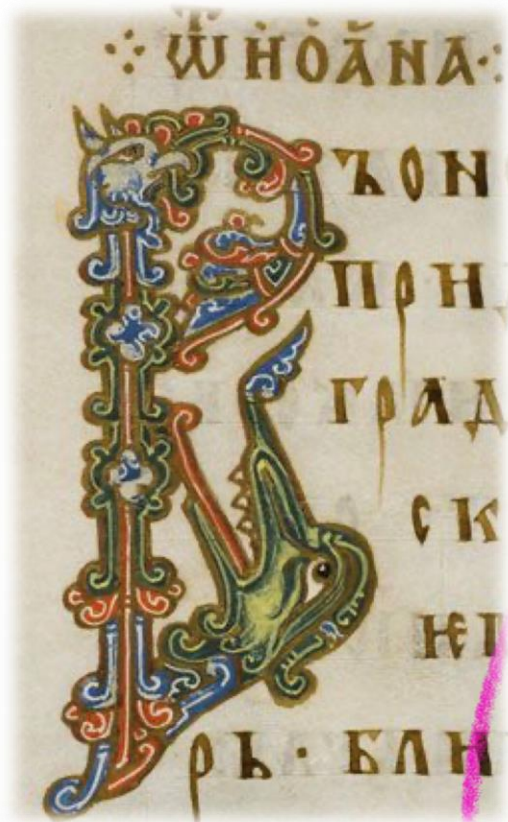 ⁘ ѿ ио҆а̑на ·
Въ он
при
град
ск
ѥ
рь · бли